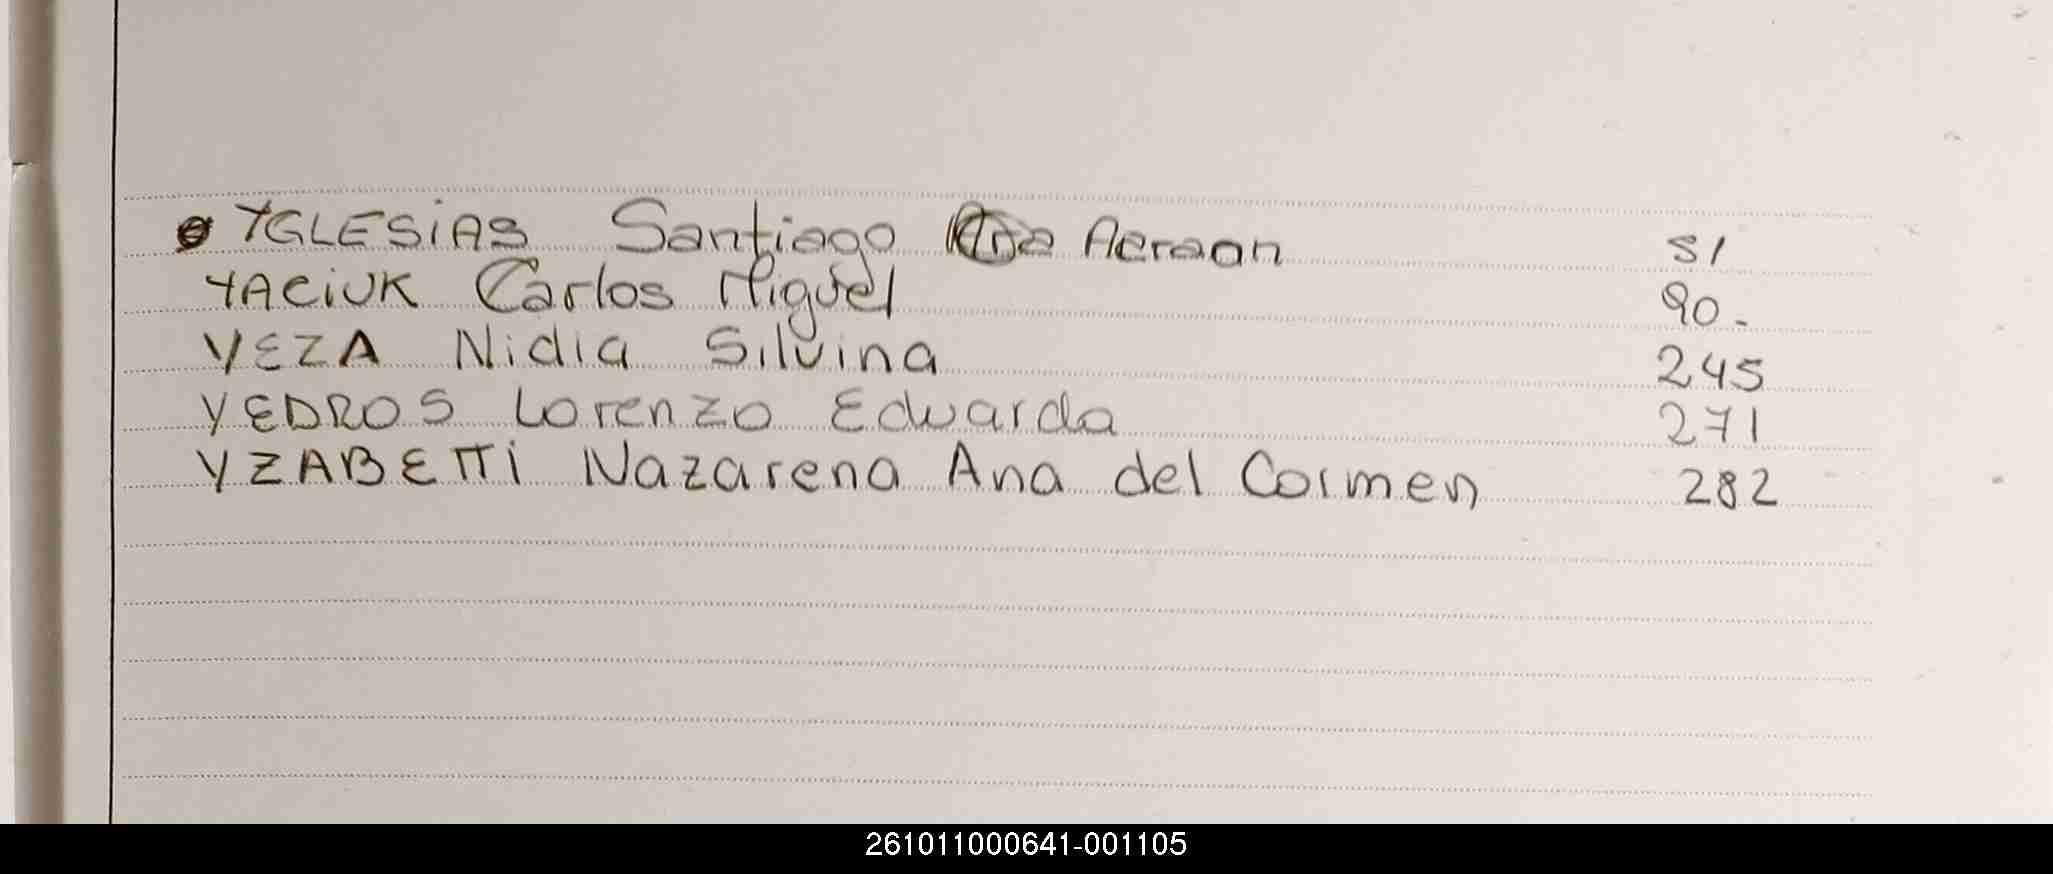 YGLESiAS Santiago Aeraon 51
YACiUK Carlos Miguel 90-
YEZA Nidia Silvina 245
YEDROS Lorenzo Eduardo 271
YZABETTi Nazarena Ana del Carmen 282
261011000641-001105